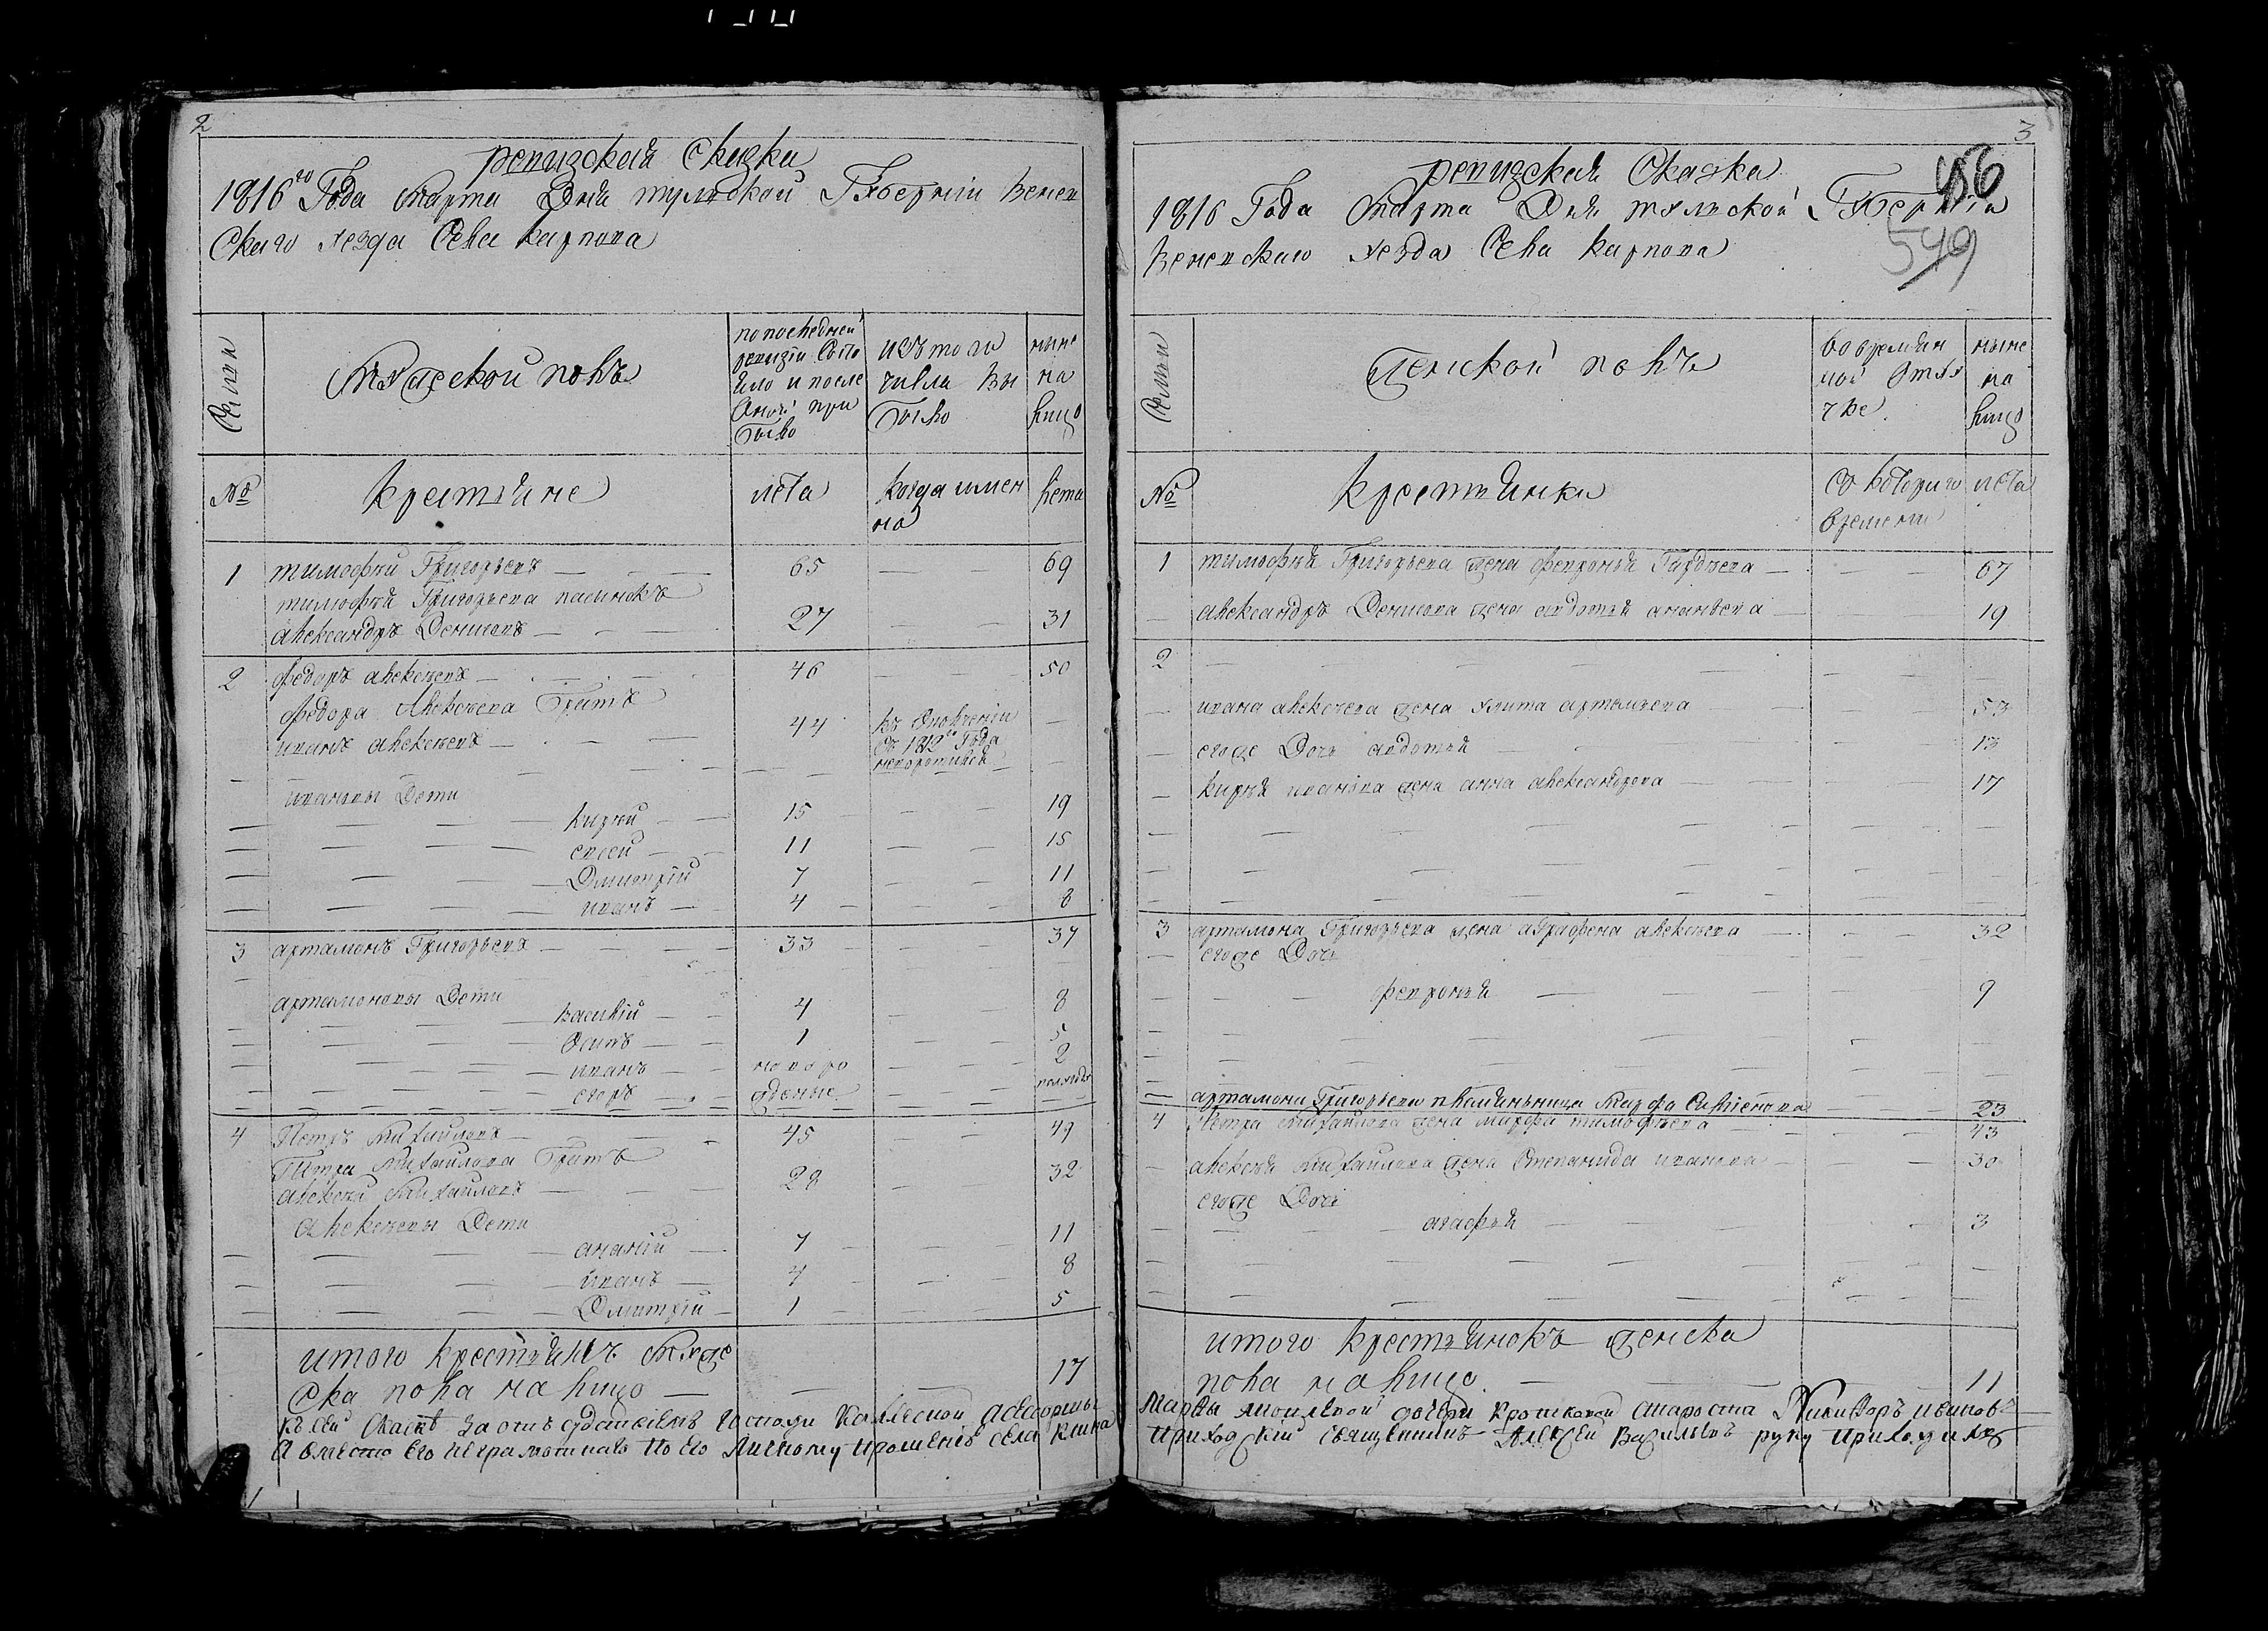 2
ревизская Скаска
1816го Года Марта Дня тульской Губернии Венев
скаго уезда Села карпова
Семьи
Мужеской полъ
по последней ревизіи Состо
яло и после
Оной при
было
изъ того
числа вы
было
ныне
на
лицо
№
крестьяне
лета
когда имен
но
лета
1 тимофей Григорьевъ — 65 — 69
тимофея Григорьева пасынокъ
александръ Денисовъ — 27 — 31
2 федоръ алексеевъ — 46 — 50
федора Алексеева Братъ
иванъ алексеевъ — 44 въ Ополчении
съ 1812го Года
невозотился
ивановы Дети
кирей — 15 — 19
евсей — 11 — 15
Дмитрій 7 — 11
иванъ — 4 — 8
3 артамонъ Григорьевъ — 33 — 37
артамоновы Дети
василій — 4 — 8
Осипъ — 1 — 5
иванъ — новоро — 2
егоръ — жденые — полгода
4 Петръ Михайловъ — 45 — 49
Петра Михайлова Братъ
алексей Михайловъ — 28 — 32
алексеевы Дети
ананій — 7 — 11
иванъ — 4 — 8
Дмитрій — 1 — 5
итого крестьянъ Муже
ска пола на лицо — 17
къ сей скаске за отъ
А вместо Его неграмотнаго по его Личному прошению села
3
ревизская Скаска
1816 Года Марта Дня тульской Губернии
Веневскаго уезда Села карпова
456
549
Семьи
Женской полъ
во времян
ной Отлу
чке
ныне
на
лицо
№
крестьянки
Съ котораго
времени
лета
1 тимофея Григорьева жена февронья Гордеева — 67
александръ Денисова жена авдотья ананьева — 19
2
ивана алексеева жена улита артемьева — 53
егоже Дочь авдотья — 13
кирея иванова жена анна александрова — 17
3 артамона Григорьева жена аграфена алексеева — 32
егоже Дочь
февронья — 9
артамона Григорьева племяньница Марфа — 23
4 Петра Михайлова жена марфа тимофеева — 43
алексея Михайлова жена Степанида иванова — 30
егоже Дочь
агафья — 3
итого крестьянокъ женска
пола на лицо — 11
дочери староста Никифоръ ивановъ
приходский священникъ Алексей Васильевъ руку приложилъ